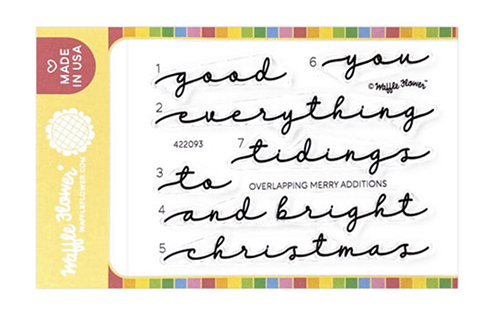 MADE IN USA
Waffle Flower
WAFFLEFLOWER.COM
1 good
6 you
© Waffle Flower™
2 everything
422093
7 tidings
3 to
OVERLAPPING MERRY ADDITIONS
4 and bright
5 christmas